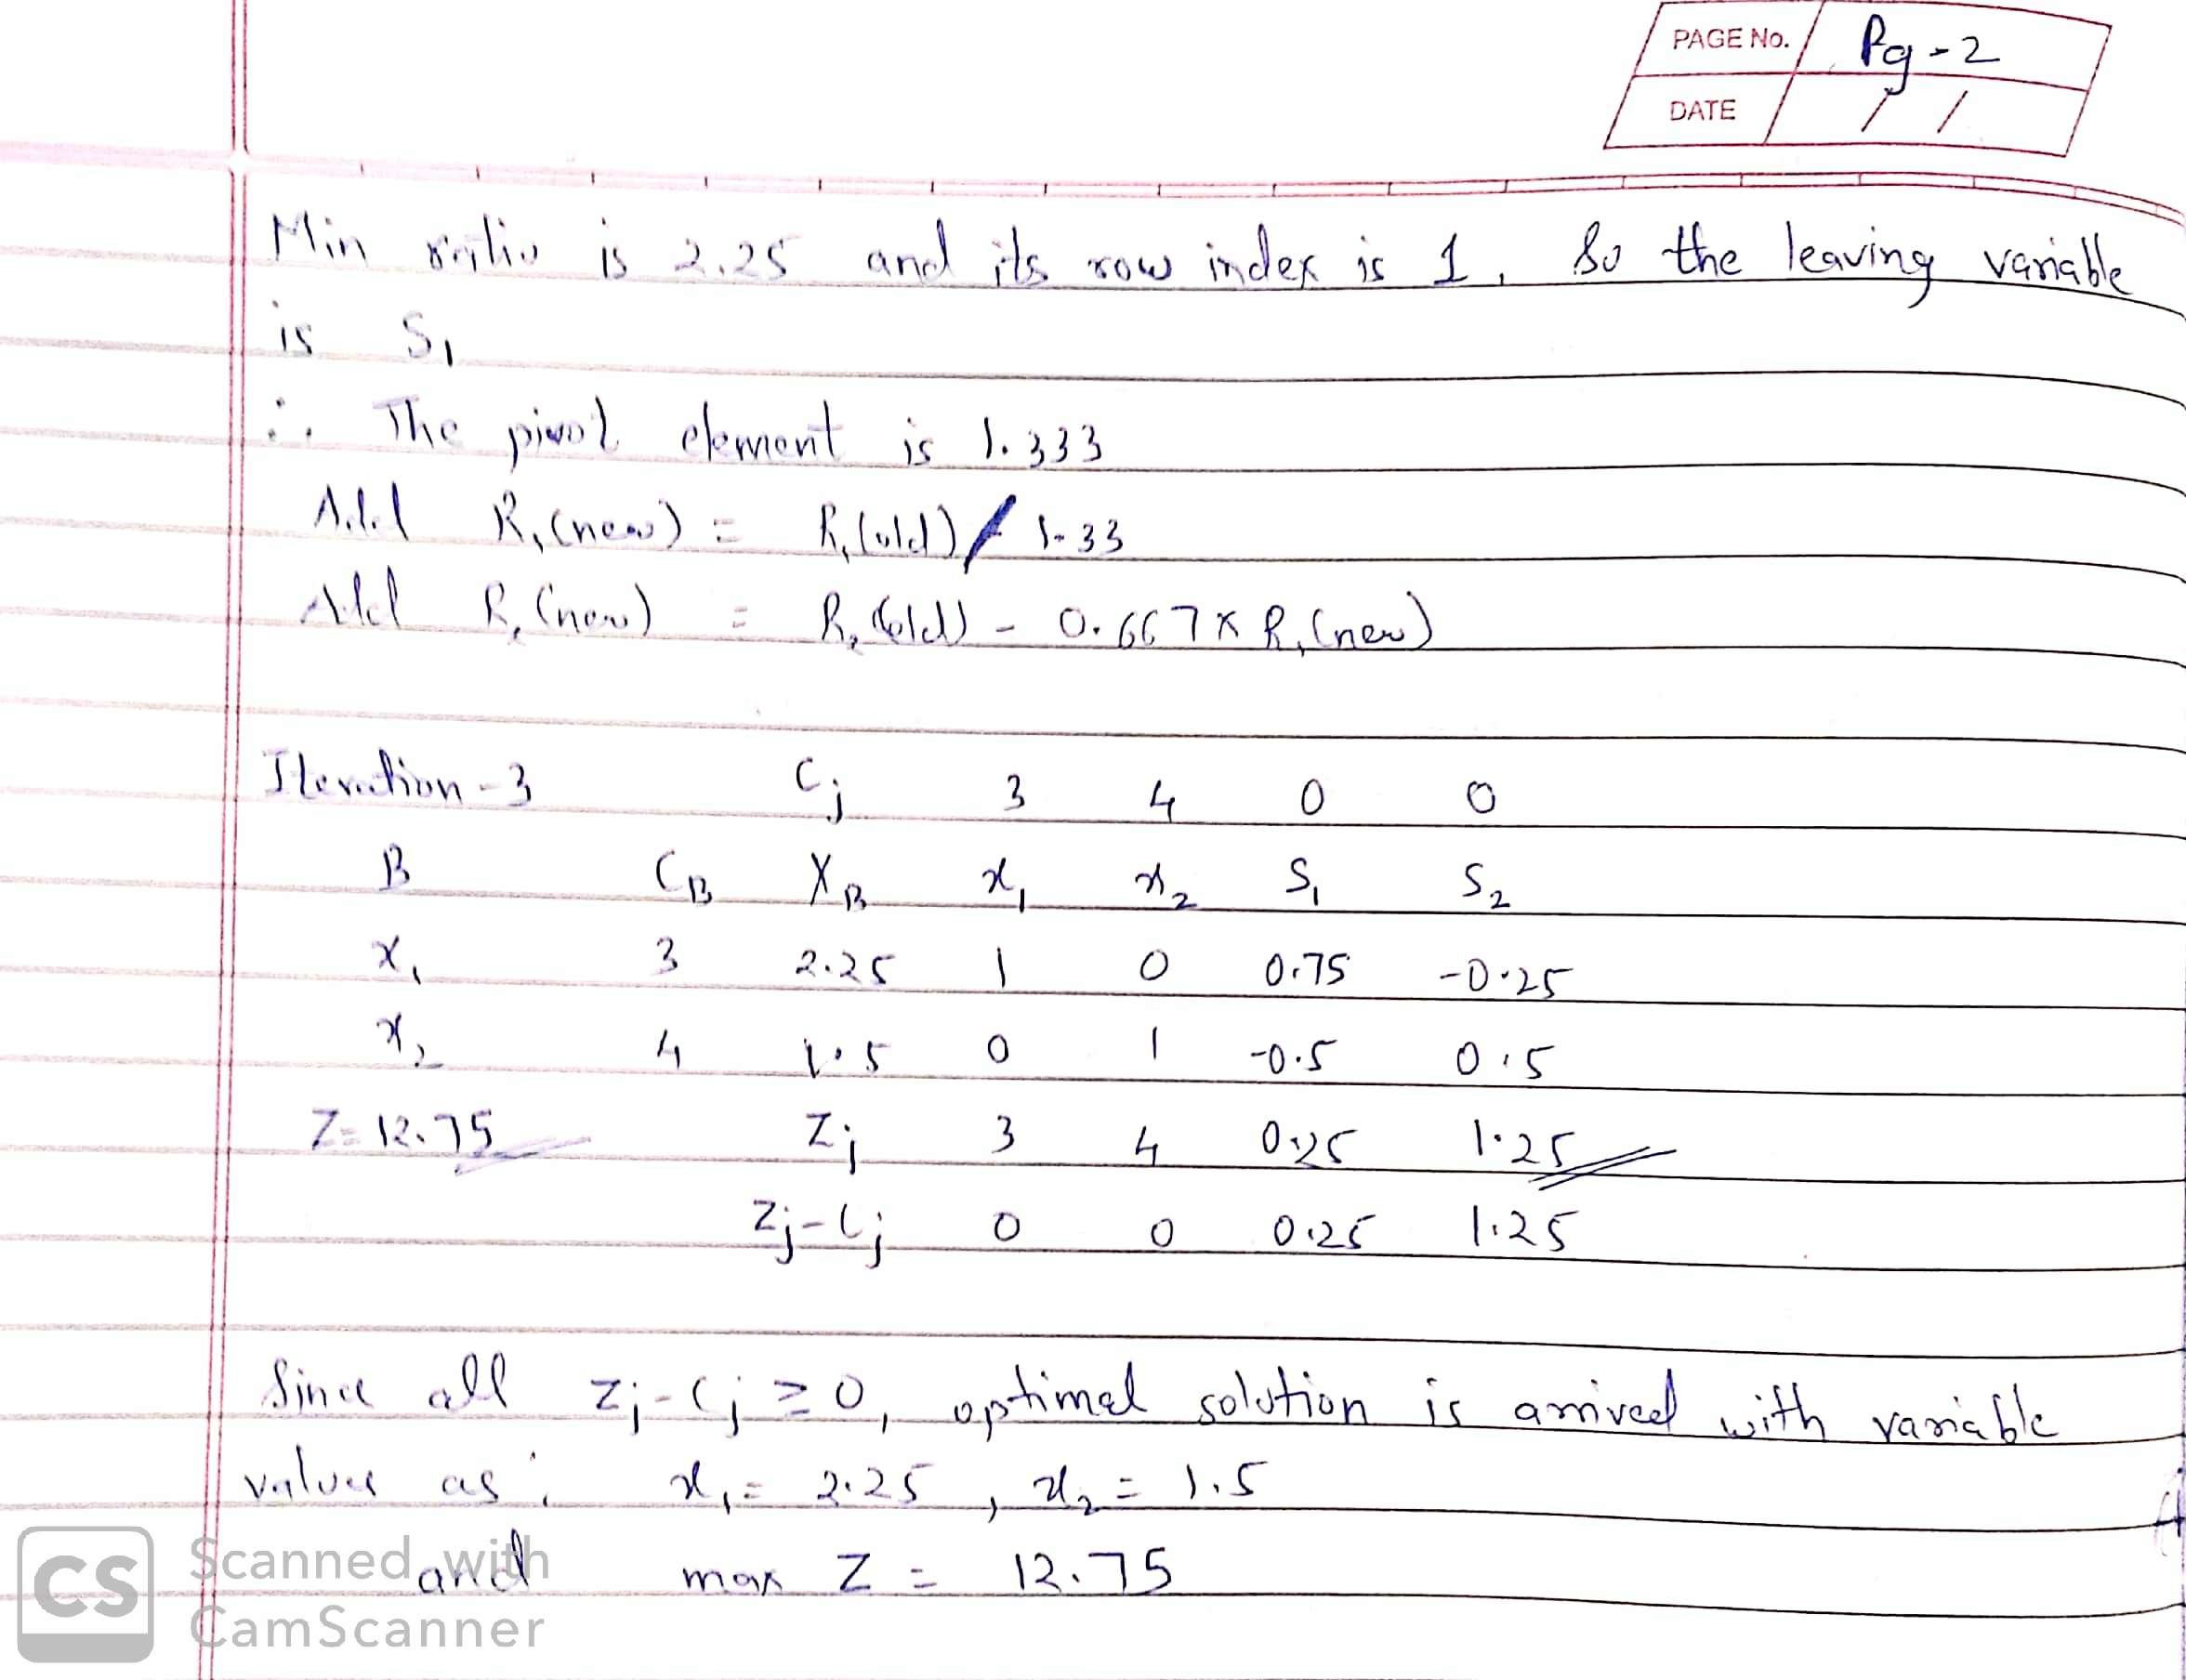 PAGE No. Pg-2
DATE / /
Min ratio is 2.25 and its row index is 1. So the leaving variable
is S₁
∴ The pivot element is 1.333
Add R₁(new) = R₁(old) / 1.33
Add R₂(new) = R₂(old) - 0.667 x R₁(new)
Iteration-3 Cj 3 4 0 0
B CB XB x₁ x₂ S₁ S₂
x₁ 3 2.25 1 0 0.75 -0.25
x₂ 4 1.5 0 1 -0.5 0.5
Z=12.75 Zj 3 4 0.25 1.25
Zj-Cj 0 0 0.25 1.25
Since all Zj-Cj ≥ 0, optimal solution is arrived with variable
values as: x₁ = 2.25, x₂ = 1.5
and max Z = 12.75
CS Scanned with
CamScanner